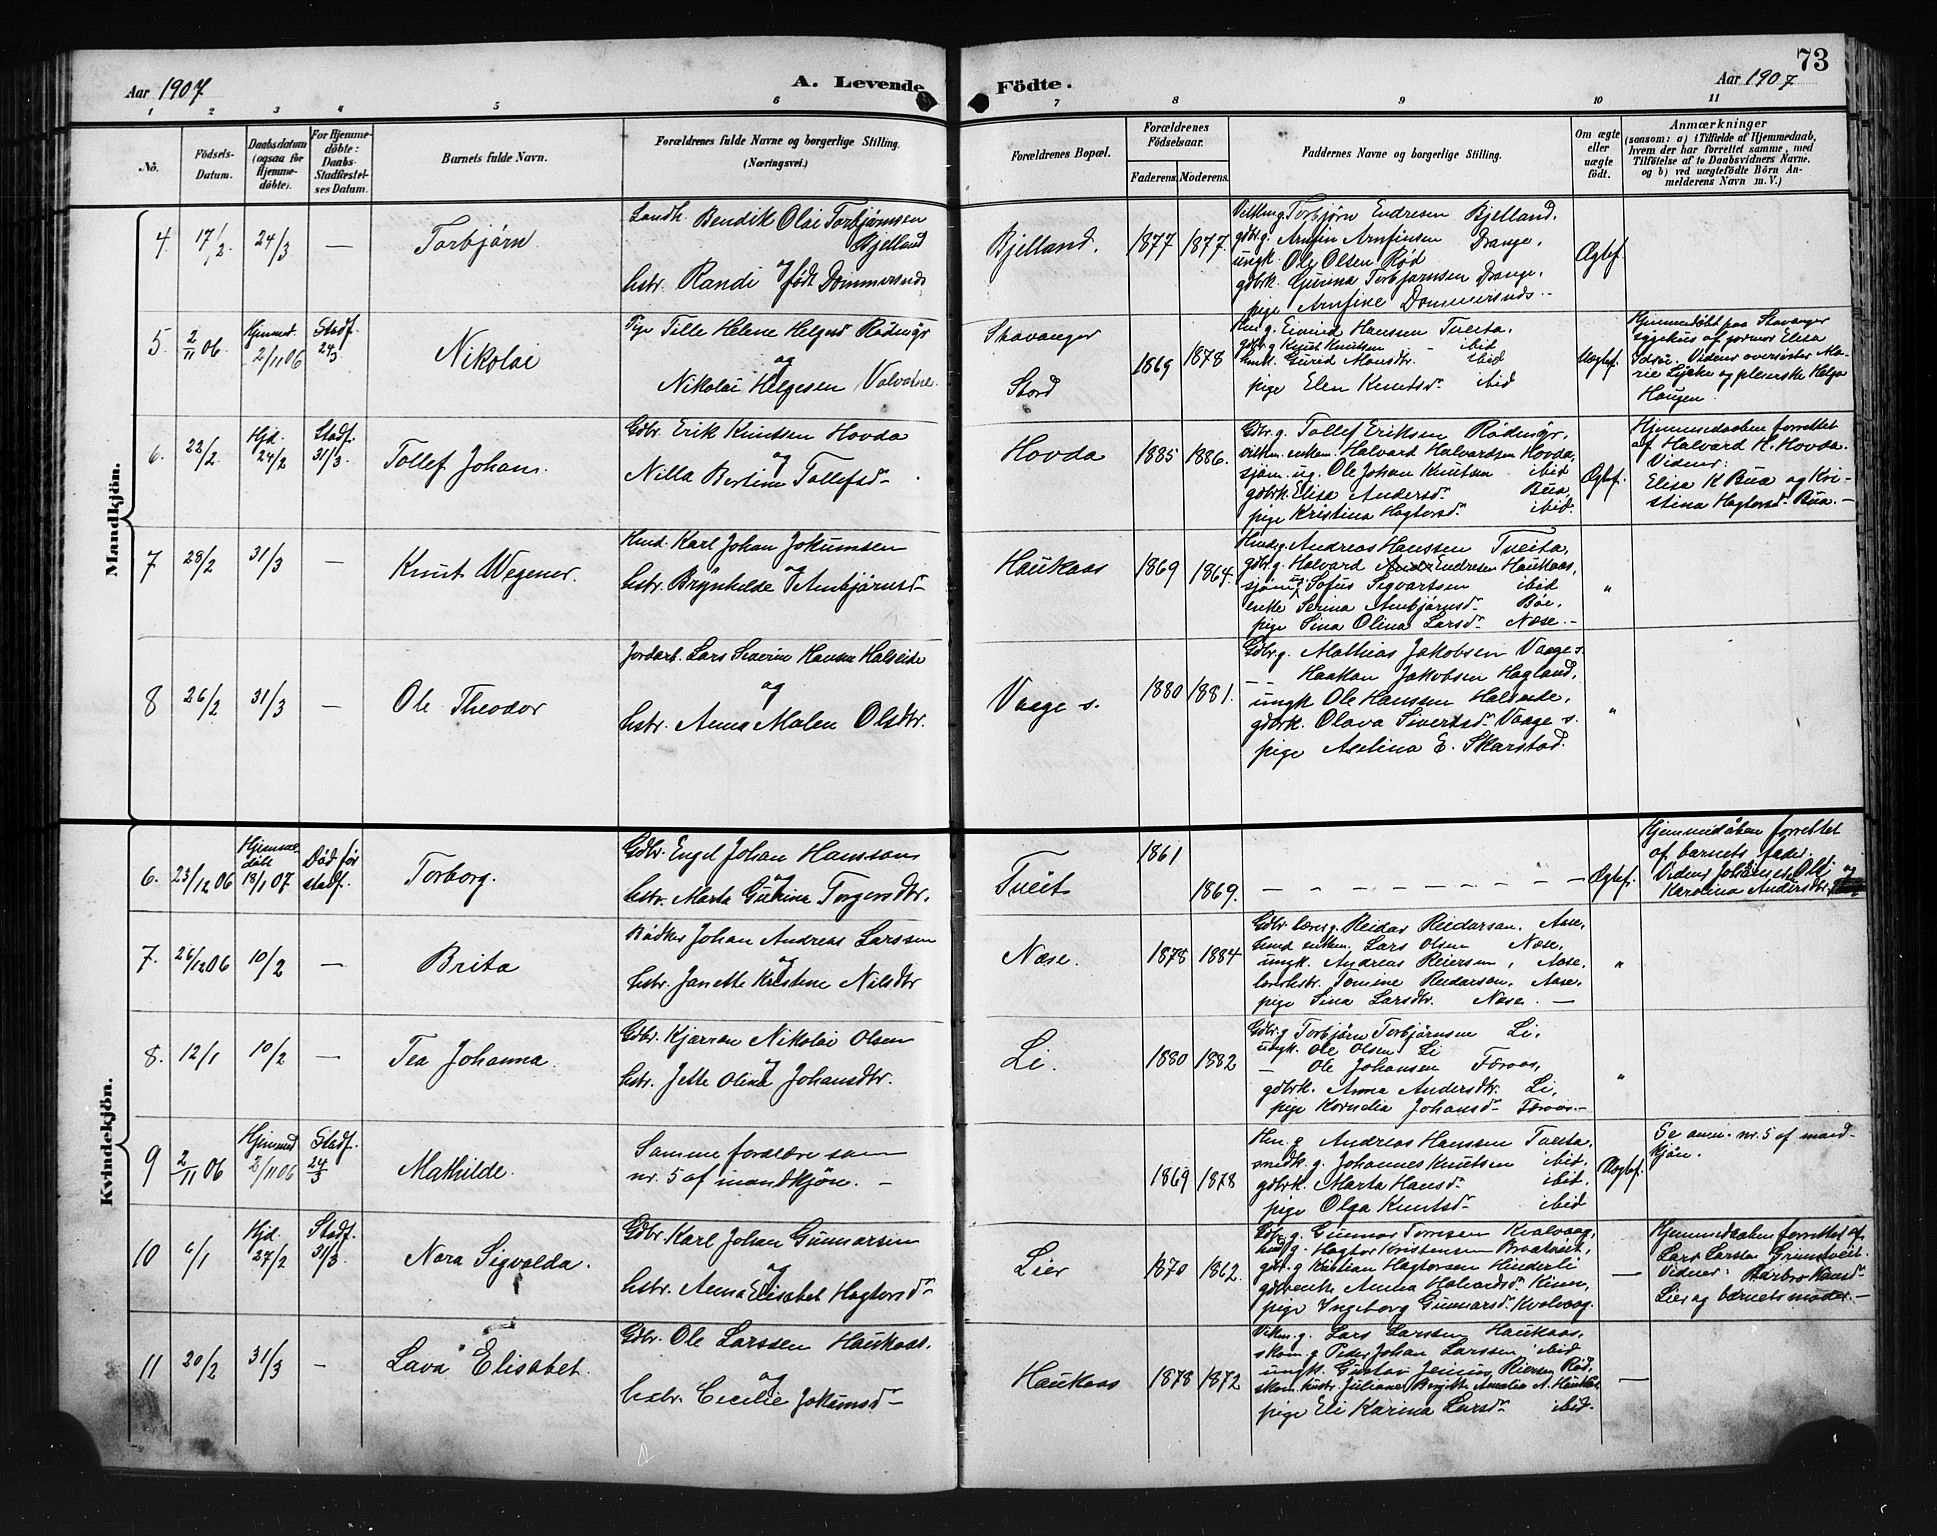 73
Aar 1907
A. Levende
Födte.
Aar 1907
1 2 3 4 5 6 7 8 9 10 11
No.
Födsels-
Datum.
Daabsdatum
(ogsaa for
Hjemme-
döbte).
For Hjemme-
döbte:
Daabs-
Stadfæstel-
ses Datum.
Barnets fulde Navn.
Forældrenes fulde Navne og borgerlige Stilling.
(Næringsvei.)
Forældrenes Bopæl.
Forældrenes
Födselsaar.
Faderens. Moderens.
Faddernes Navne og borgerlige Stilling.
Om ægte
eller
uægte
födt.
Anmærkninger
(saasom: a) i Tilfælde af Hjemmedaab,
hvem der har forrettet samme, med
Tilföielse af to Daabsvidners Navne,
og b) ved uægtefödte Börn An-
melderens Navn m. V.)
Mandkjön.
4. 17/2. 24/3 — Torbjørn
Landh. Bendik Olai Torbjørnsen
Bjelland
og
hstr. Randi født Dommersnds
Bjelland. 1877 1877.
Torbjørn Endresen Bjelland,
gdbr.g. Arnfin Arnfinsen Drange,
ungk. Ole Olsen Rød
gdbrk. Gurina Torbjørnsen Drange,
pige Arnfine Dommersnds. —
Ægtef.
5. 2/11 06. Hjemmed. 2/11 06 Stadf. 24/3 Nikolai
Pige Tille Helene Helgesd Rødmyr
og
Nikolai Helgesen Valvatne.
Stavanger
Stord
1869 1878
Hm.g. Eivind Hanssen Tveita,
gdbr.g Knut Knutsen — ibid
hmk. Gurid Monsdtr. ibid
pige Elen Knutsd. ibid
Uægtef.
Hjemmedøbt paa Stavanger
sygehus af jormor Elisa
Idsøe. Vidner oversøster Ma-
rie Lycke og pleierske Helga
Haugen.
6. 22/2. Hjd. 24/2 Stadf. 31/3. Tollef Johan.
Gdbr. Erik Knutsen Hovda
og
Nilla Bertine Tollefsd.
Hovda 1885 1886.
Gdbr.g. Tollef Eriksen Rødmyr,
Halvard Halvardsen Hovda,
sjøm. ug. Ole Johan Knutsen ibid
gdbrk. Elisa Andersd. Bua,
pige Kristina Hagtorsd. ibid.
Ægtef.
Hjemmedaaben forrettet
af Halvard H. Hovda.
Vidner:
Elisa K Bua og Kri-
stina Hagtorsd. Bua. —
7 28/2 31/3 — Knut Wegener.
Hmd. Karl Johan Jokumsen
og
hstr. Brynhilde Ambjørnsd.
Haukaas 1869 1864.
Hmd.g. Andreas Hanssen Tveita,
gdbr.g. Halvard Endresen Haukaas,
sjøm. ug Sofus Sigvartsen ibid
enke Serina Ambjørnsd. Bøe,
pige Sina Olina Larsd. Næse. —
"
8 26/2 31/3 — Ole Theodor
Jordarb. Lars Severin Hansen Halseide
og
hstr. Anna Malen Olsdtr.
Vaage s. 1880 1881.
Gdbr.g. Mathias Jakobsen Vaage s.
— — Haakon Jakobsen Hagland,
ungk. Ole Hanssen Halseide,
gdbrk. Olava Sivertsd. Vaage s.
pige Aselina E. Skarstad.
"
Kvindekjön.
6. 23/12 06 Hjemme- døbt 18/1 07. Død før stadf. Torborg.
Gdbr. Engel Johan Hanssen
og
hstr. Marta Gurine Torgersdtr.
Tveit 1861 1869.
— — — — — — — —
Ægtef.
Hjemmedåben forrettet
af barnets fader.
Karolina Andersdtr.
7. 26/12 06 10/2 — Brita
Bødker Johan Andreas Larssen
og
hstr. Janette Kristine Nilsdtr
Næse. 1878 1884
Reidar Reidarsen, Aase,
Lars Olsen Næse,
ungk. Andreas Reiersen, Aase,
Tomine Reidarsen, Aase,
pige Sina Larsdtr. Næse. —
"
8. 12/1 10/2 — Tea Johanna.
Gdbr. Kjærran Nikolai Olsen
og
hstr. Jette Olina Johansdtr.
Li. 1880 1882
Gdbr.g Torbjørn Torbjørnsen Li,
ungk. Ole Olsen Li
— Ole Johansen Færaas,
gdbrk. Anna Andersdtr. Li,
pige Kornelia Johansd. Færaas. —
"
9 2/11 06 Hjemmed 2/11 06 Stadf. 24/3 Mathilde.
Samme forældre som
nr. 5 af mandkjøn. —
1869 1878
Hm.g Andreas Hanssen Tveita,
smedk. g. Johannes Knutsen ibid,
gdbrk. Marta Hansd. ibid.
pige Olga Knutsd. ibid
Uægtef.
Se anm. nr. 5 af mand-
kjøn.
10 6/1 Hjd. 27/2 Stadf. 31/3. Nora Sigvalda.
Gdbr. Karl Johan Gunnarsen
og
hstr. Anna Elisabet Hagtorsd.
Lier 1870 1862.
Gdbr. g. Gunnar Torresen Kvalvaag,
g. Hagtor Kristensen Brattveit,
gdbr. g Kristian Hagtorsen Hinderli
Anna Halvardsd.
pige Ingeborg Gunnarsd. Kvalvaag.
—
Hjemmedaaben forrettet af
Lars Larsen Grimsveit.
Vidner: Barbro Hansd.
Lier og barnets moder. —
11 20/2 31/3 — Lava Elisabet.
Gdbr. Ole Larssen Haukaas.
og
hstr. Cecilie Jokumsd —
Haukaas 1878 1872
Lars Larssen Haukaas,
skom. g. Peder Johan Larssen ibid
ungk. Gustav Reiersen Rød,
Juliane Bergitte Amalia
pige Eli Karina Larsd. ibid.
—